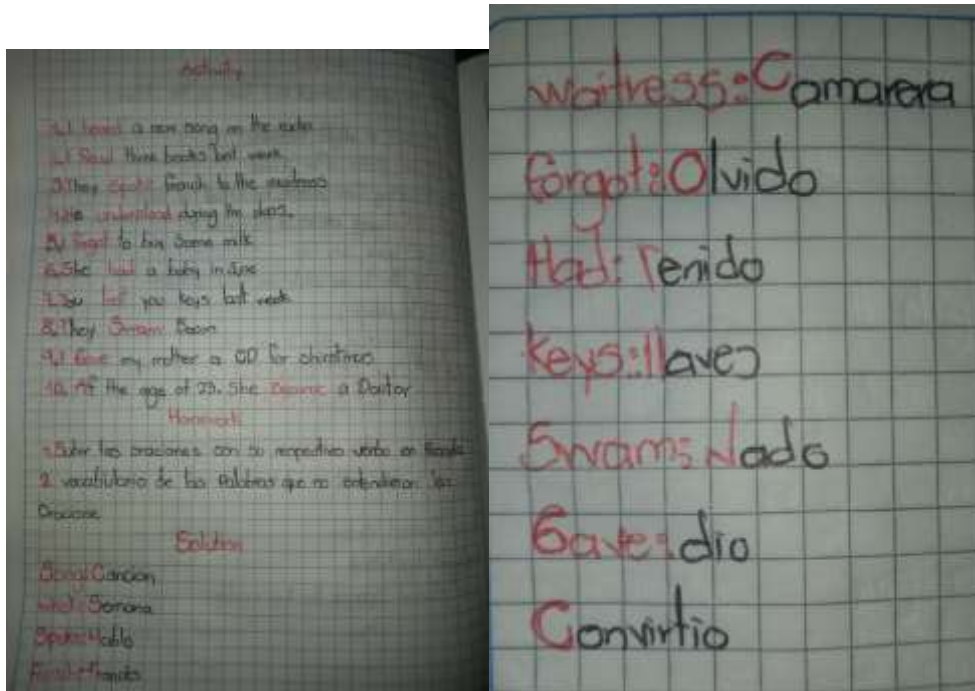 Activity
1. I heard a new song on the radio.
2. I Read three books last week.
3. They Spoke French to the waitress
4. He understood during the class.
5. I Forgot to buy Some milk
6. She had a baby in June
7. You lost you keys last week
8. They Swam
9. I Gave my mother a CD for
10. At the age of 23. She Became a Doctor
Homework
1. Subir las oraciones con su respectivo verbo en
2. vocabulario de las Palabras que no entendieron las
Oracione
Solution
Song: Cancion
week: Semana
Spoke: Hablo
French: Frances
Waitress: Camarera
Forgot: Olvido
Had: Tenido
Keys: llaves
Swam: Nado
Gave: dio
Convirtio